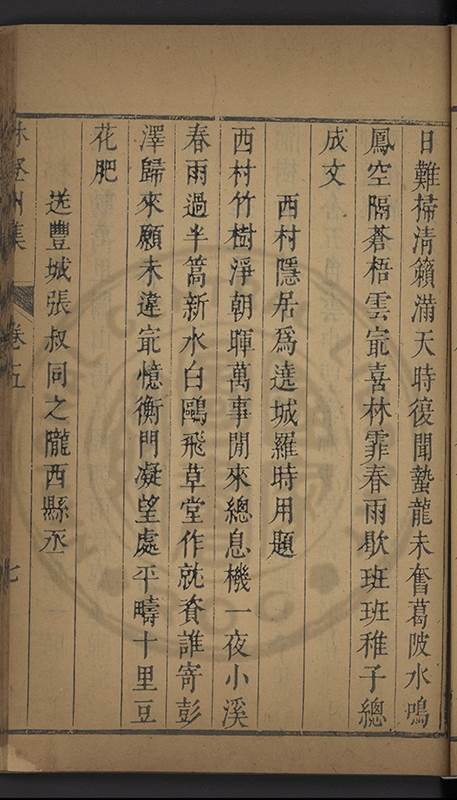 日難掃清籟滿天時復聞蟄龍未奮葛陂水鳴
鳳空隔蒼梧雲寂喜林霏春雨歇班班稚子總
成文
西村隱居爲遶城羅時用題
西村竹樹淨朝暉萬事閒來總息機一夜小溪
春雨過半篙新水白鷗飛草堂作就資誰寄彭
澤歸來願未違寂憶衡門凝望處平疇十里豆
花肥
送豐城張叔同之隴西縣丞
集
卷五
七